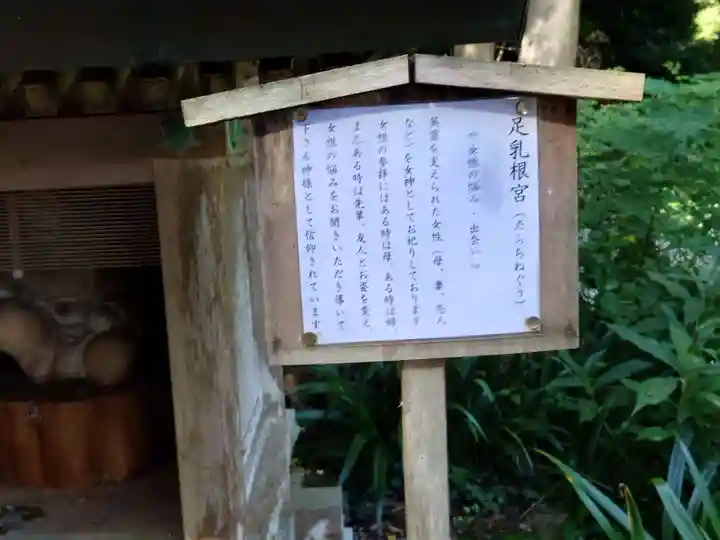 足乳根宮（たらちねぐう）
《女性の悩み・出会い》
英霊を支えられた女性（母、妻、恋人
など）を女神としてお祀りしております
女性の参拝にはある時は母、ある時は姉、
またある時は先輩、友人とお姿を変え
女性の悩みをお聞きいただき導いて
下さる神様として信仰されています。